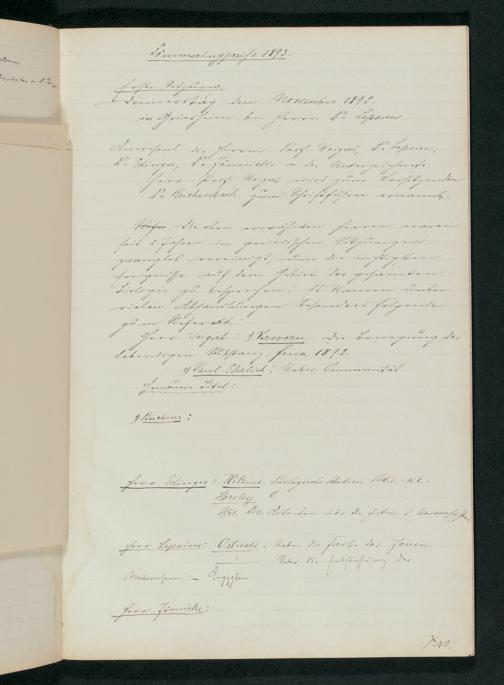 Sömmeringpreis 1893.
Erste Sitzung.
Donnerstag den November 1892.
in Griesheim bei Herrn Dr. Lepsius
Anwesend die Herren Prof. Weigert, Dr. Lepsius,
Dr. Edinger, Dr. Jännicke u. der Unterzeichnete.
Herr Prof. Weigert wird zum Vorsitzenden
Dr. Reichenbach zum Schriftführer ernannt.
Die oben erwähnten Herren waren
seit 2 Jahren in periodischen Sitzungen
zwanglos vereinigt, um die wichtigsten
Ereignisse auf dem Gebiet der gesamten
Biologie zu besprechen: Es kamen unter
vielen Abhandlungen besonders folgende
zum Referat:
Herr Weigert: 1) Verworn. Die Bewegung der
lebendigen Substanz. Jena 1892.
2) Paul Ehrlich: Ueber Immunität
Genauere Titel:
3) Buchner:
Herr Edinger: Retzius. Biologische Studien.
Horsley
Herr Lepsius: Ostwald. Ueber die Farbe der Jonen
Ueber die Entstehung der
Herr Jännicke: